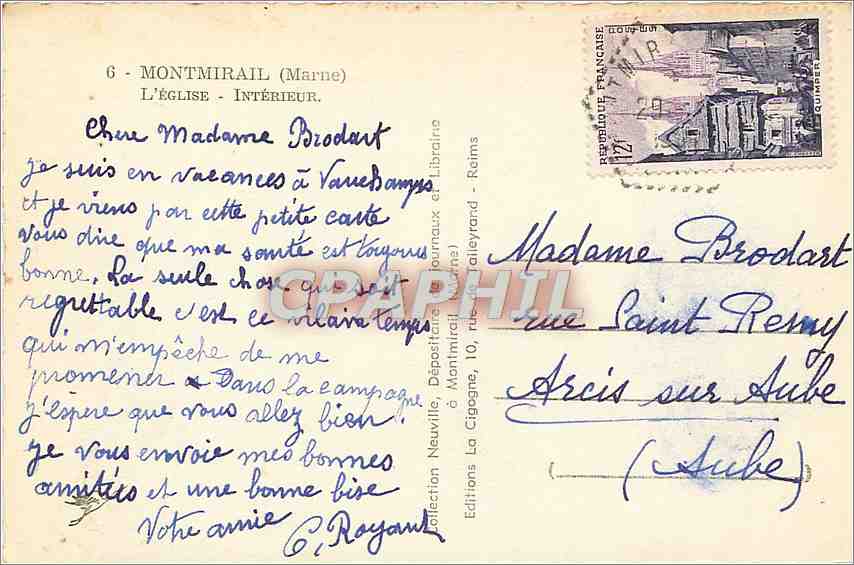 6 - MONTMIRAIL (Marne)
L'ÉGLISE - INTÉRIEUR.
Chère Madame Brodart
je suis en vacances à Vauchamps
et je viens par cette petite carte
vous dire que ma santé est toujours
bonne. La seule chose qui soit
regrettable c'est ce vilain temps
qui m'empêche de me
promener dans la campagne
j'espère que vous allez bien.
je vous envoie mes bonnes
amitiés et une bonne bise
Votre amie
C, Royant
Collection Neuville, Dépositaire de Journaux et Librairie
à Montmirail (Marne)
Editions La Cigogne, 10, rue de Talleyrand - Reims
RÉPUBLIQUE FRANÇAISE
POSTES
12F
QUIMPER
TMIR
29
Madame Brodart
rue Saint Remy
Arcis sur Aube
(Aube)
CPAPHIL